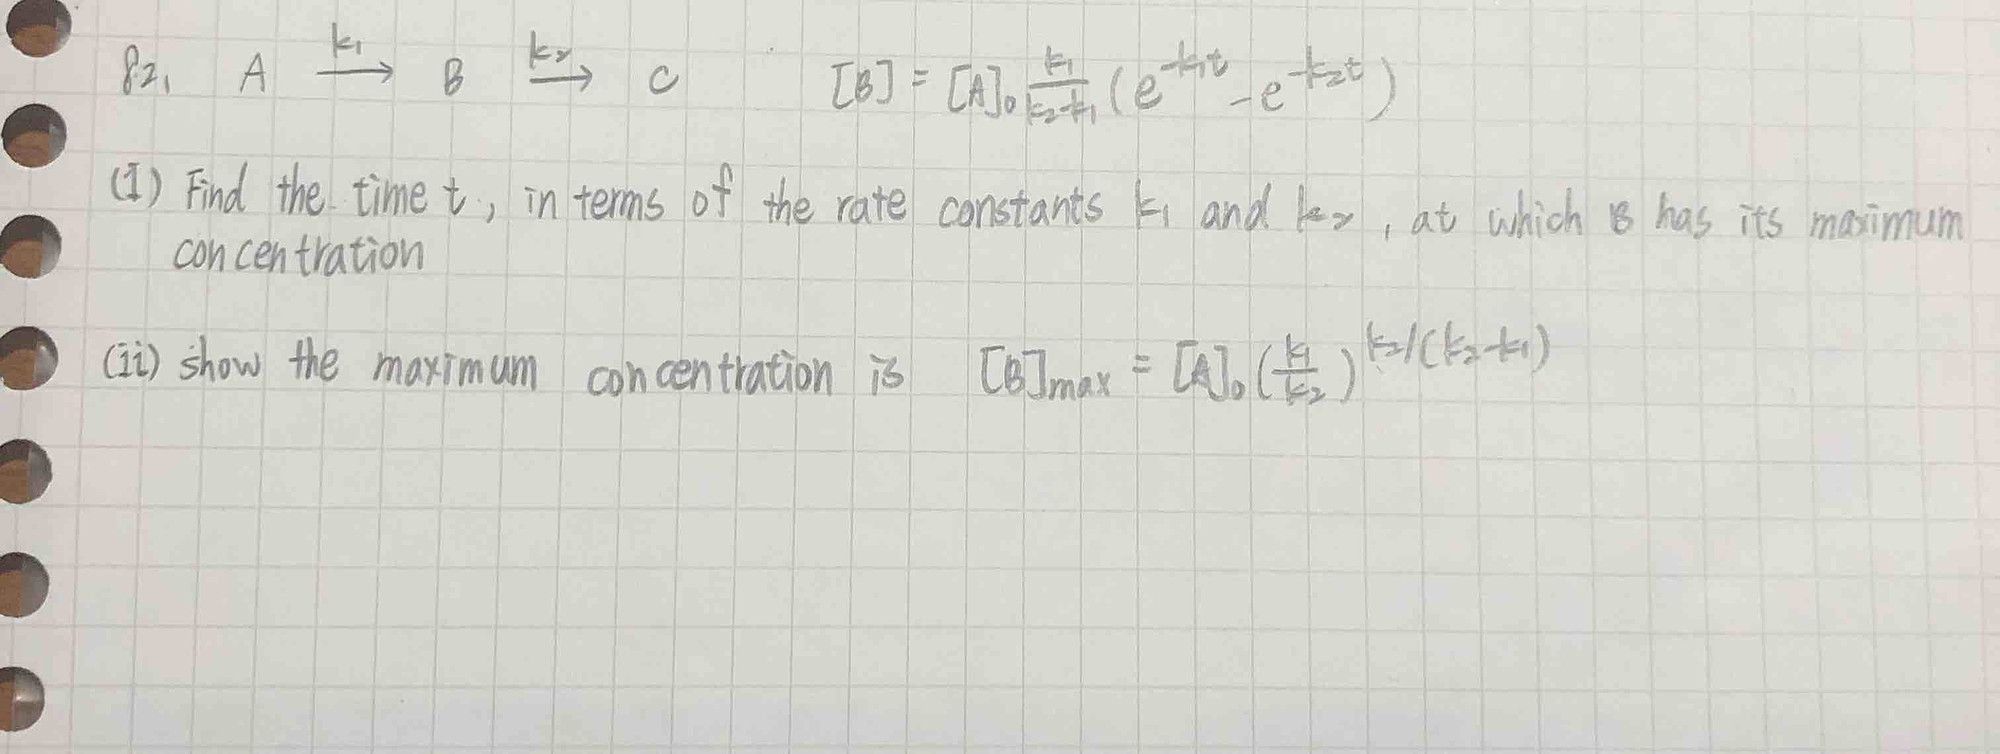 82, A k₁→ B k₂→ C [B] = [A]₀ k₁/(k₂-k₁) (e^(-k₁t) - e^(-k₂t))
(I) Find the time t, in terms of the rate constants k₁ and k₂, at which B has its maximum
concentration
(ii) show the maximum concentration is [B]max = [A]₀ (k₁/k₂)^(k₂/(k₂-k₁))